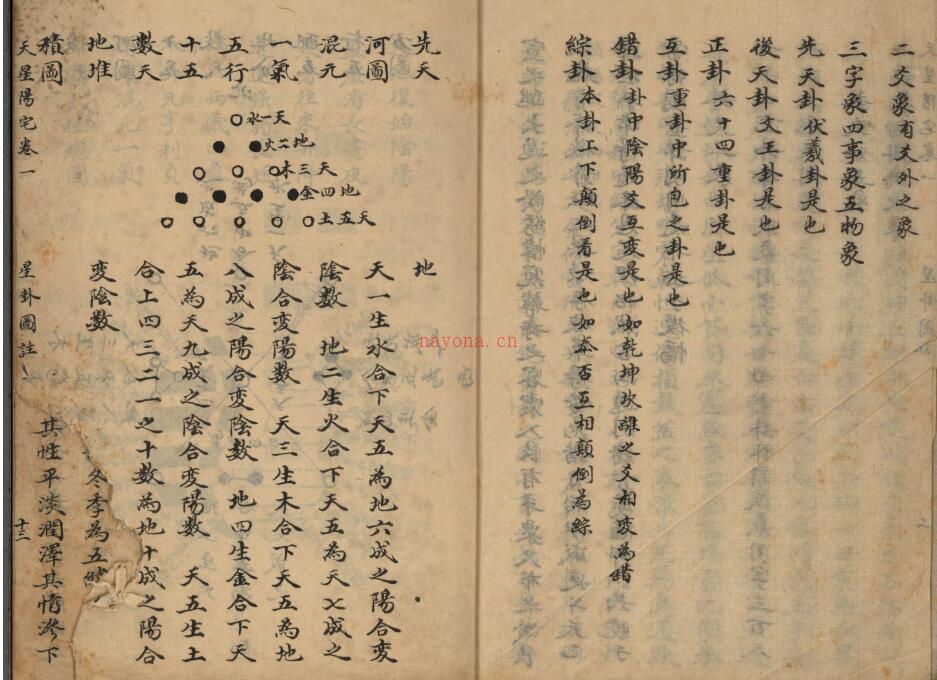 二爻象有爻外之象
三字象四事象五物象
先天卦伏羲卦是也
後天卦文王卦是也
正卦六十四重卦是也
互卦重卦中所包之卦是也
錯卦卦中陰陽爻互變是也如乾坤坎離之爻相变為錯
綜卦本卦上下顛倒看是也如泰否互相顛倒為綜
先天
河圖
混元
一氣
五行
十五
數天
地堆
積圖
天一水
地二火
天三木
地四金
天五土
地
天一生水合下天五為地六成之陽合変
陰數 地二生火合下天五為天七成之
陰合变陽數 天三生木合下天五為地
八成之陽合变陰數 地四生金合下天
五為天九成之陰合变陽數 天五生土
合上四三二一之十數為地十成之陽合
変陰數
冬季為五
其性平淡潤澤其情滲下
天星陽宅卷一 星卦圖註 十三
nayona.cn